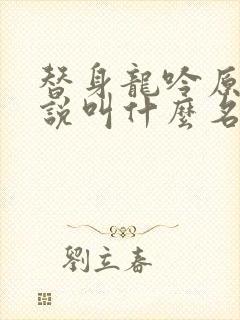 替身龍吟原
說叫什麼名
劉立春